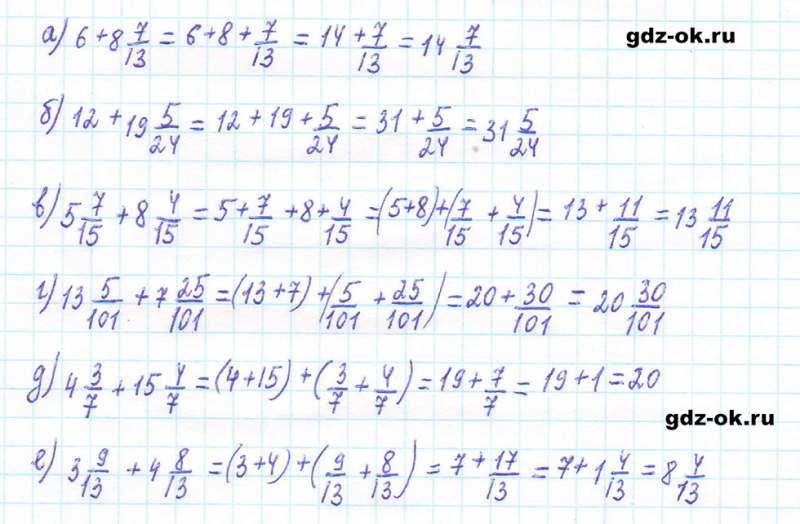 gdz-ok.ru
а) 6 + 8 7/13 = 6 + 8 + 7/13 = 14 + 7/13 = 14 7/13
б) 12 + 19 5/24 = 12 + 19 + 5/24 = 31 + 5/24 = 31 5/24
в) 5 7/15 + 8 4/15 = 5 + 7/15 + 8 + 4/15 = (5+8) + (7/15 + 4/15) = 13 + 11/15 = 13 11/15
г) 13 5/101 + 7 25/101 = (13+7) + (5/101 + 25/101) = 20 + 30/101 = 20 30/101
д) 4 3/7 + 15 4/7 = (4+15) + (3/7 + 4/7) = 19 + 7/7 = 19 + 1 = 20
gdz-ok.ru
е) 3 9/13 + 4 8/13 = (3+4) + (9/13 + 8/13) = 7 + 17/13 = 7 + 1 4/13 = 8 4/13